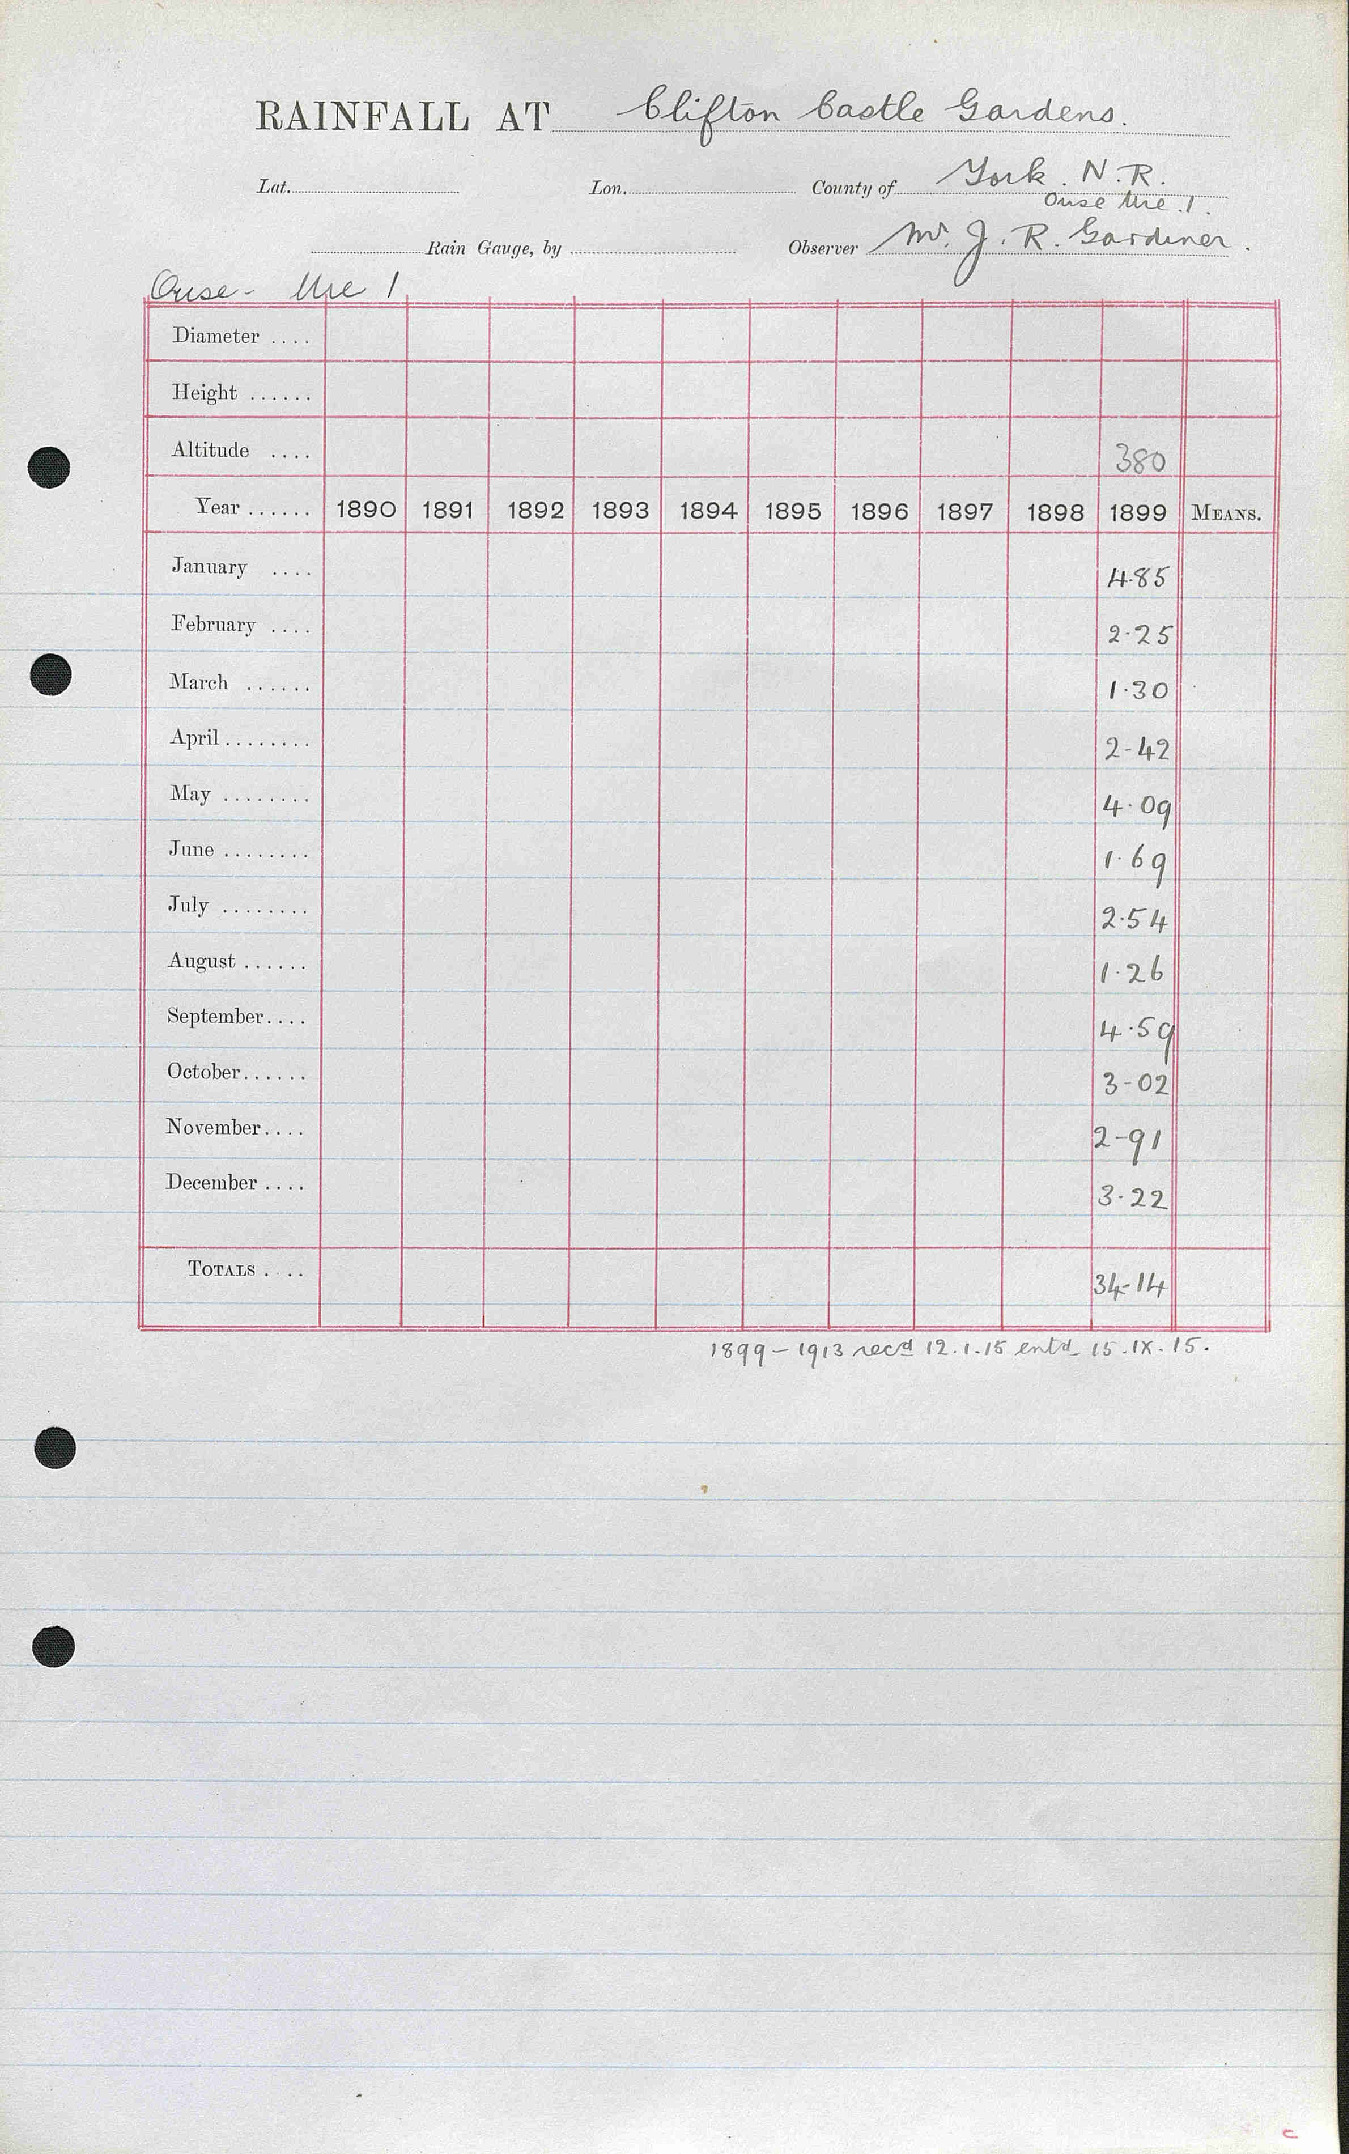 RAINFALL AT Clifton Castle Gardens.
Lat. Lon. County of York. N.R.
Ouse Ure .1.
Rain Gauge, by Observer Mr. J. R. Gardiner.
Ouse - Ure 1
Diameter ....
Height ......
Altitude .... 380
Year ...... 1890 1891 1892 1893 1894 1895 1896 1897 1898 1899 MEANS.
January .... 4.85
February .... 2.25
March ...... 1.30
April ........ 2-42
May ........ 4.09
June ........ 1.69
July ........ 2.54
August ...... 1.26
September.... 4.59
October...... 3-02
November.... 2-91
December .... 3.22
TOTALS .... 34-14
1899 - 1913 recd 12.1.15 entd 15.IX.15.